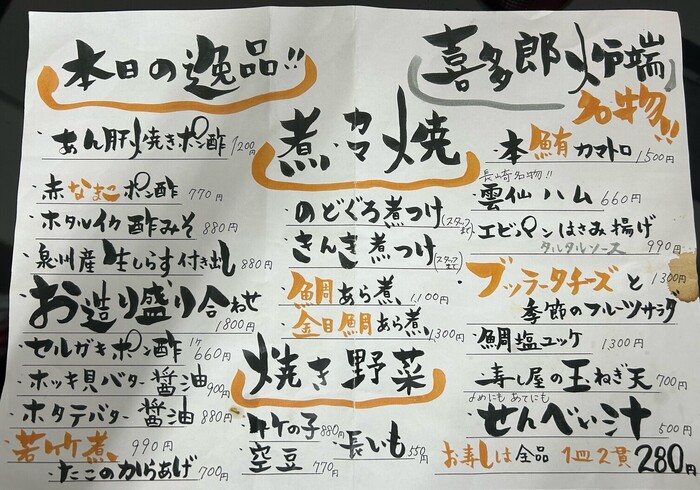 本日の逸品!!
あん肝焼きポン酢 1200円
・赤なまこポン酢 770円
・ホタルイカ酢みそ 880円
・泉州産生しらす付き出し 880円
・お造り盛り合わせ 1800円
・セルガキポン酢 1ケ 660円
・ホッキ貝バター醤油 900円
・ホタテバター醤油 880円
・若竹煮 990円
・たこのからあげ 700円
煮・カマ・焼
・のどぐろ煮つけ(スタッフまで)
・きんき煮つけ(スタッフまで)
・鯛あら煮 1,100円
・金目鯛あら煮 1,300円
焼き野菜
・竹の子 880円
・長いも 550円
・空豆 770円
喜多郎炉端
名物!!
・本鮪カマトロ 1500円
長崎名物!!
・雲仙ハム 660円
・エビパンはさみ揚げ
タルタルソース 990円
・ブッラータチーズと 1300円
季節のフルーツサラダ
・鯛塩ユッケ 1300円
・寿し屋の玉ねぎ天 700円
よめにもあてにも
・せんべい汁 500円
お寿しは全品 1皿2貫 280円